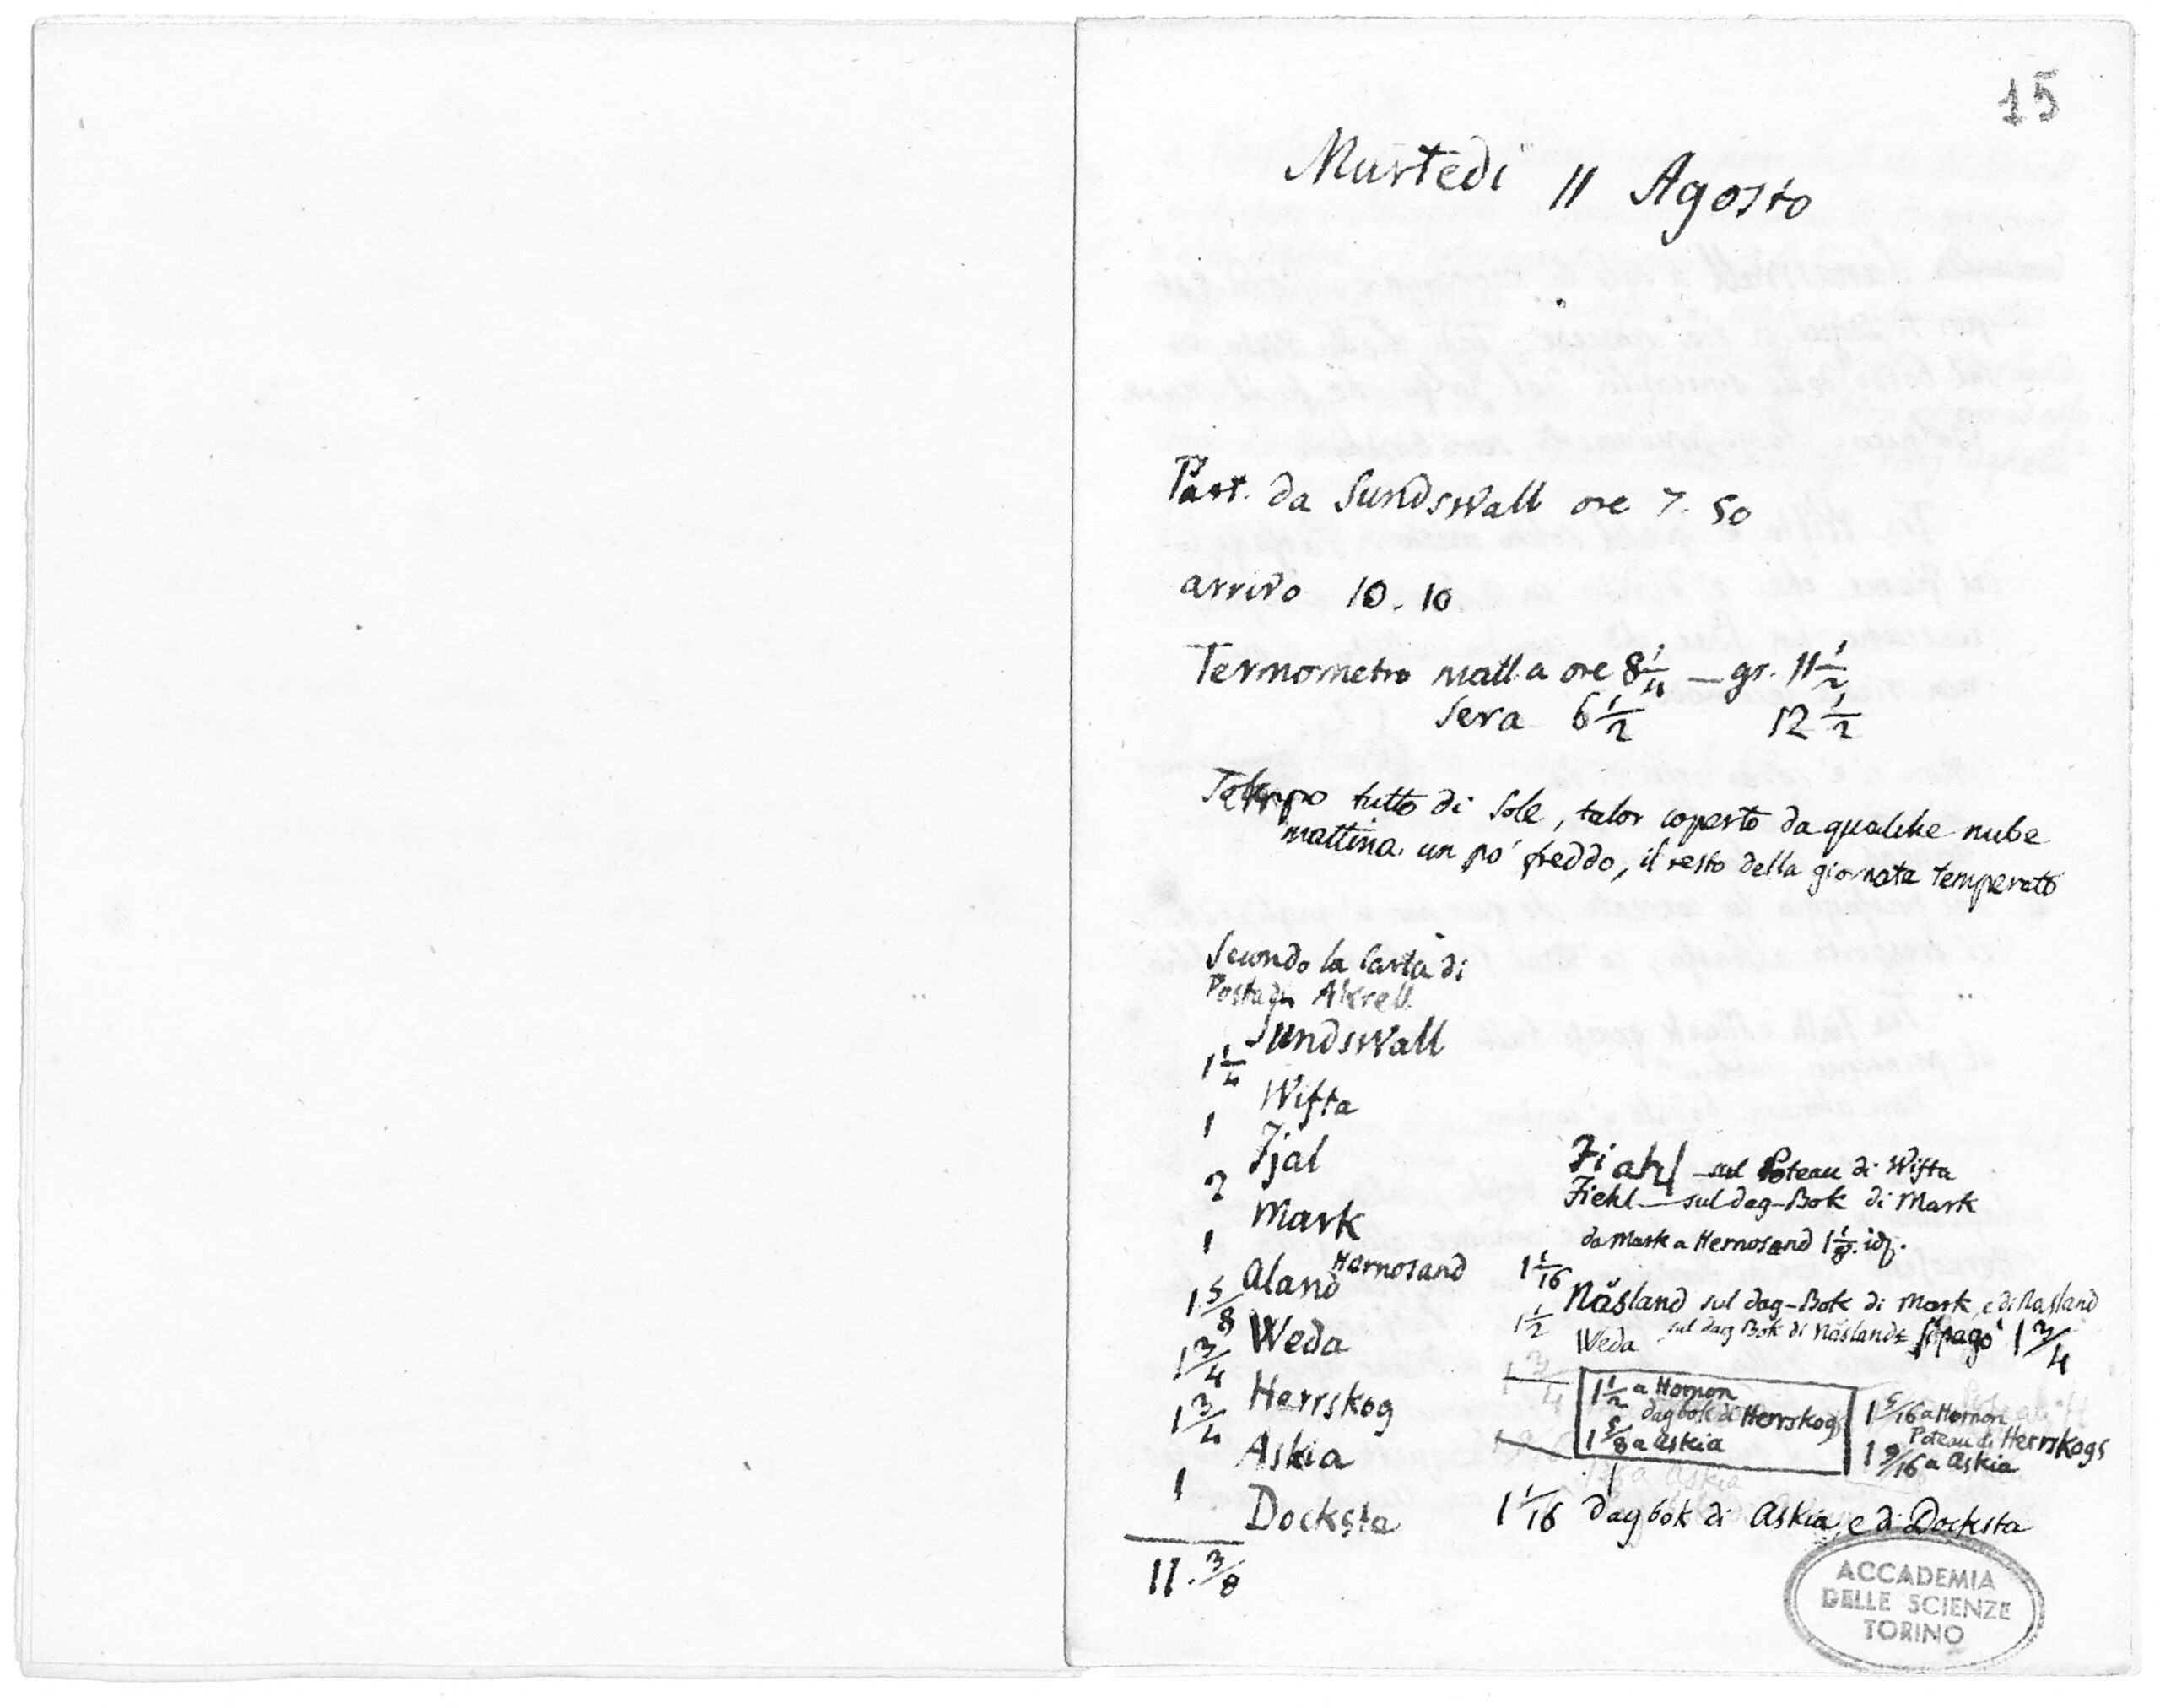 15
Martedi 11 Agosto
Part. da Sundswall ore 7. 50
arrivo 10. 10
Termometro matt.a ore 8 1/4 — gr. 11 1/2
Sera 6 1/2 12 1/2
Tempo tutto di Sole, talor coperto da qualche nube
mattina un pò freddo, il resto della giornata temperato
Secondo la Carta di
Posta di Akrell
Sundswall
1 1/4
Wifta
1
Fjal
2
Mark
1
Aland Hernosand
1 5/8
Weda
1 3/4
Herrskog
1 3/4
Askia
1
Docksta
11. 3/8
Fiahl — sul Poteau di Wifta
Fiehl — sul dag-Bok di Mark
da Mark a Hernosand 1 1/8. id.
1 1/16 Näsland sul dag-Bok di Mark, e di Nasland
1 1/2 Weda sul dag Bok di Näsland si pagò 1 3/4
1 3/4
1 1/2 a Hornon
dagbok di Herrskogs
1 5/8 a Askia
1 5/16 a Hornon
Poteau di Herrskogs
1 9/16 a Askia
1 1/16 dagbok di Askia, e di Docksta
ACCADEMIA
DELLE SCIENZE
TORINO